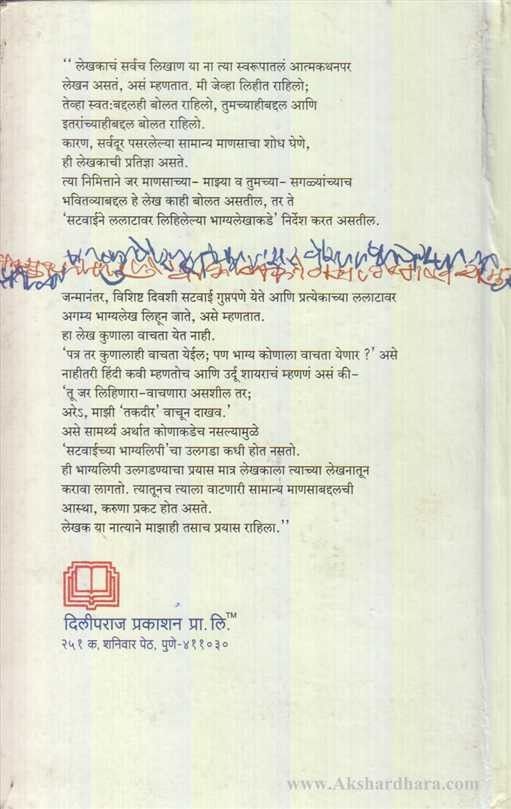 “ लेखकाचं सर्वच लिखाण या ना त्या स्वरूपातलं आत्मकथनपर
लेखन असतं, असं म्हणतात. मी जेव्हा लिहीत राहिलो;
तेव्हा स्वत:बद्दलही बोलत राहिलो, तुमच्याहीबद्दल आणि
इतरांच्याहीबद्दल बोलत राहिलो.
कारण, सर्वदूर पसरलेल्या सामान्य माणसाचा शोध घेणे,
ही लेखकाची प्रतिज्ञा असते.
त्या निमित्ताने जर माणसाच्या- माझ्या व तुमच्या- सगळ्यांच्याच
भवितव्याबद्दल हे लेख काही बोलत असतील, तर ते
‘सटवाईने ललाटावर लिहिलेल्या भाग्यलेखाकडे’ निर्देश करत असतील.
जन्मानंतर, विशिष्ट दिवशी सटवाई गुप्तपणे येते आणि प्रत्येकाच्या ललाटावर
अगम्य भाग्यलेख लिहून जाते, असे म्हणतात.
हा लेख कुणाला वाचता येत नाही.
‘पत्र तर कुणालाही वाचता येईल; पण भाग्य कोणाला वाचता येणार ?’ असे
नाहीतरी हिंदी कवी म्हणतोच आणि उर्दू शायराचं म्हणणं असं की-
‘तू जर लिहिणारा-वाचणारा असशील तर;
अरेऽ, माझी ‘तकदीर’ वाचून दाखव.’
असे सामर्थ्य अर्थात कोणाकडेच नसल्यामुळे
‘सटवाईच्या भाग्यलिपी’चा उलगडा कधी होत नसतो.
ही भाग्यलिपी उलगडण्याचा प्रयास मात्र लेखकाला त्याच्या लेखनातून
करावा लागतो. त्यातूनच त्याला वाटणारी सामान्य माणसाबद्दलची
आस्था, करुणा प्रकट होत असते.
लेखक या नात्याने माझाही तसाच प्रयास राहिला.”
दिलीपराज प्रकाशन प्रा. लि.™
२५१ क, शनिवार पेठ, पुणे-४११०३०
www.Akshardhara.com